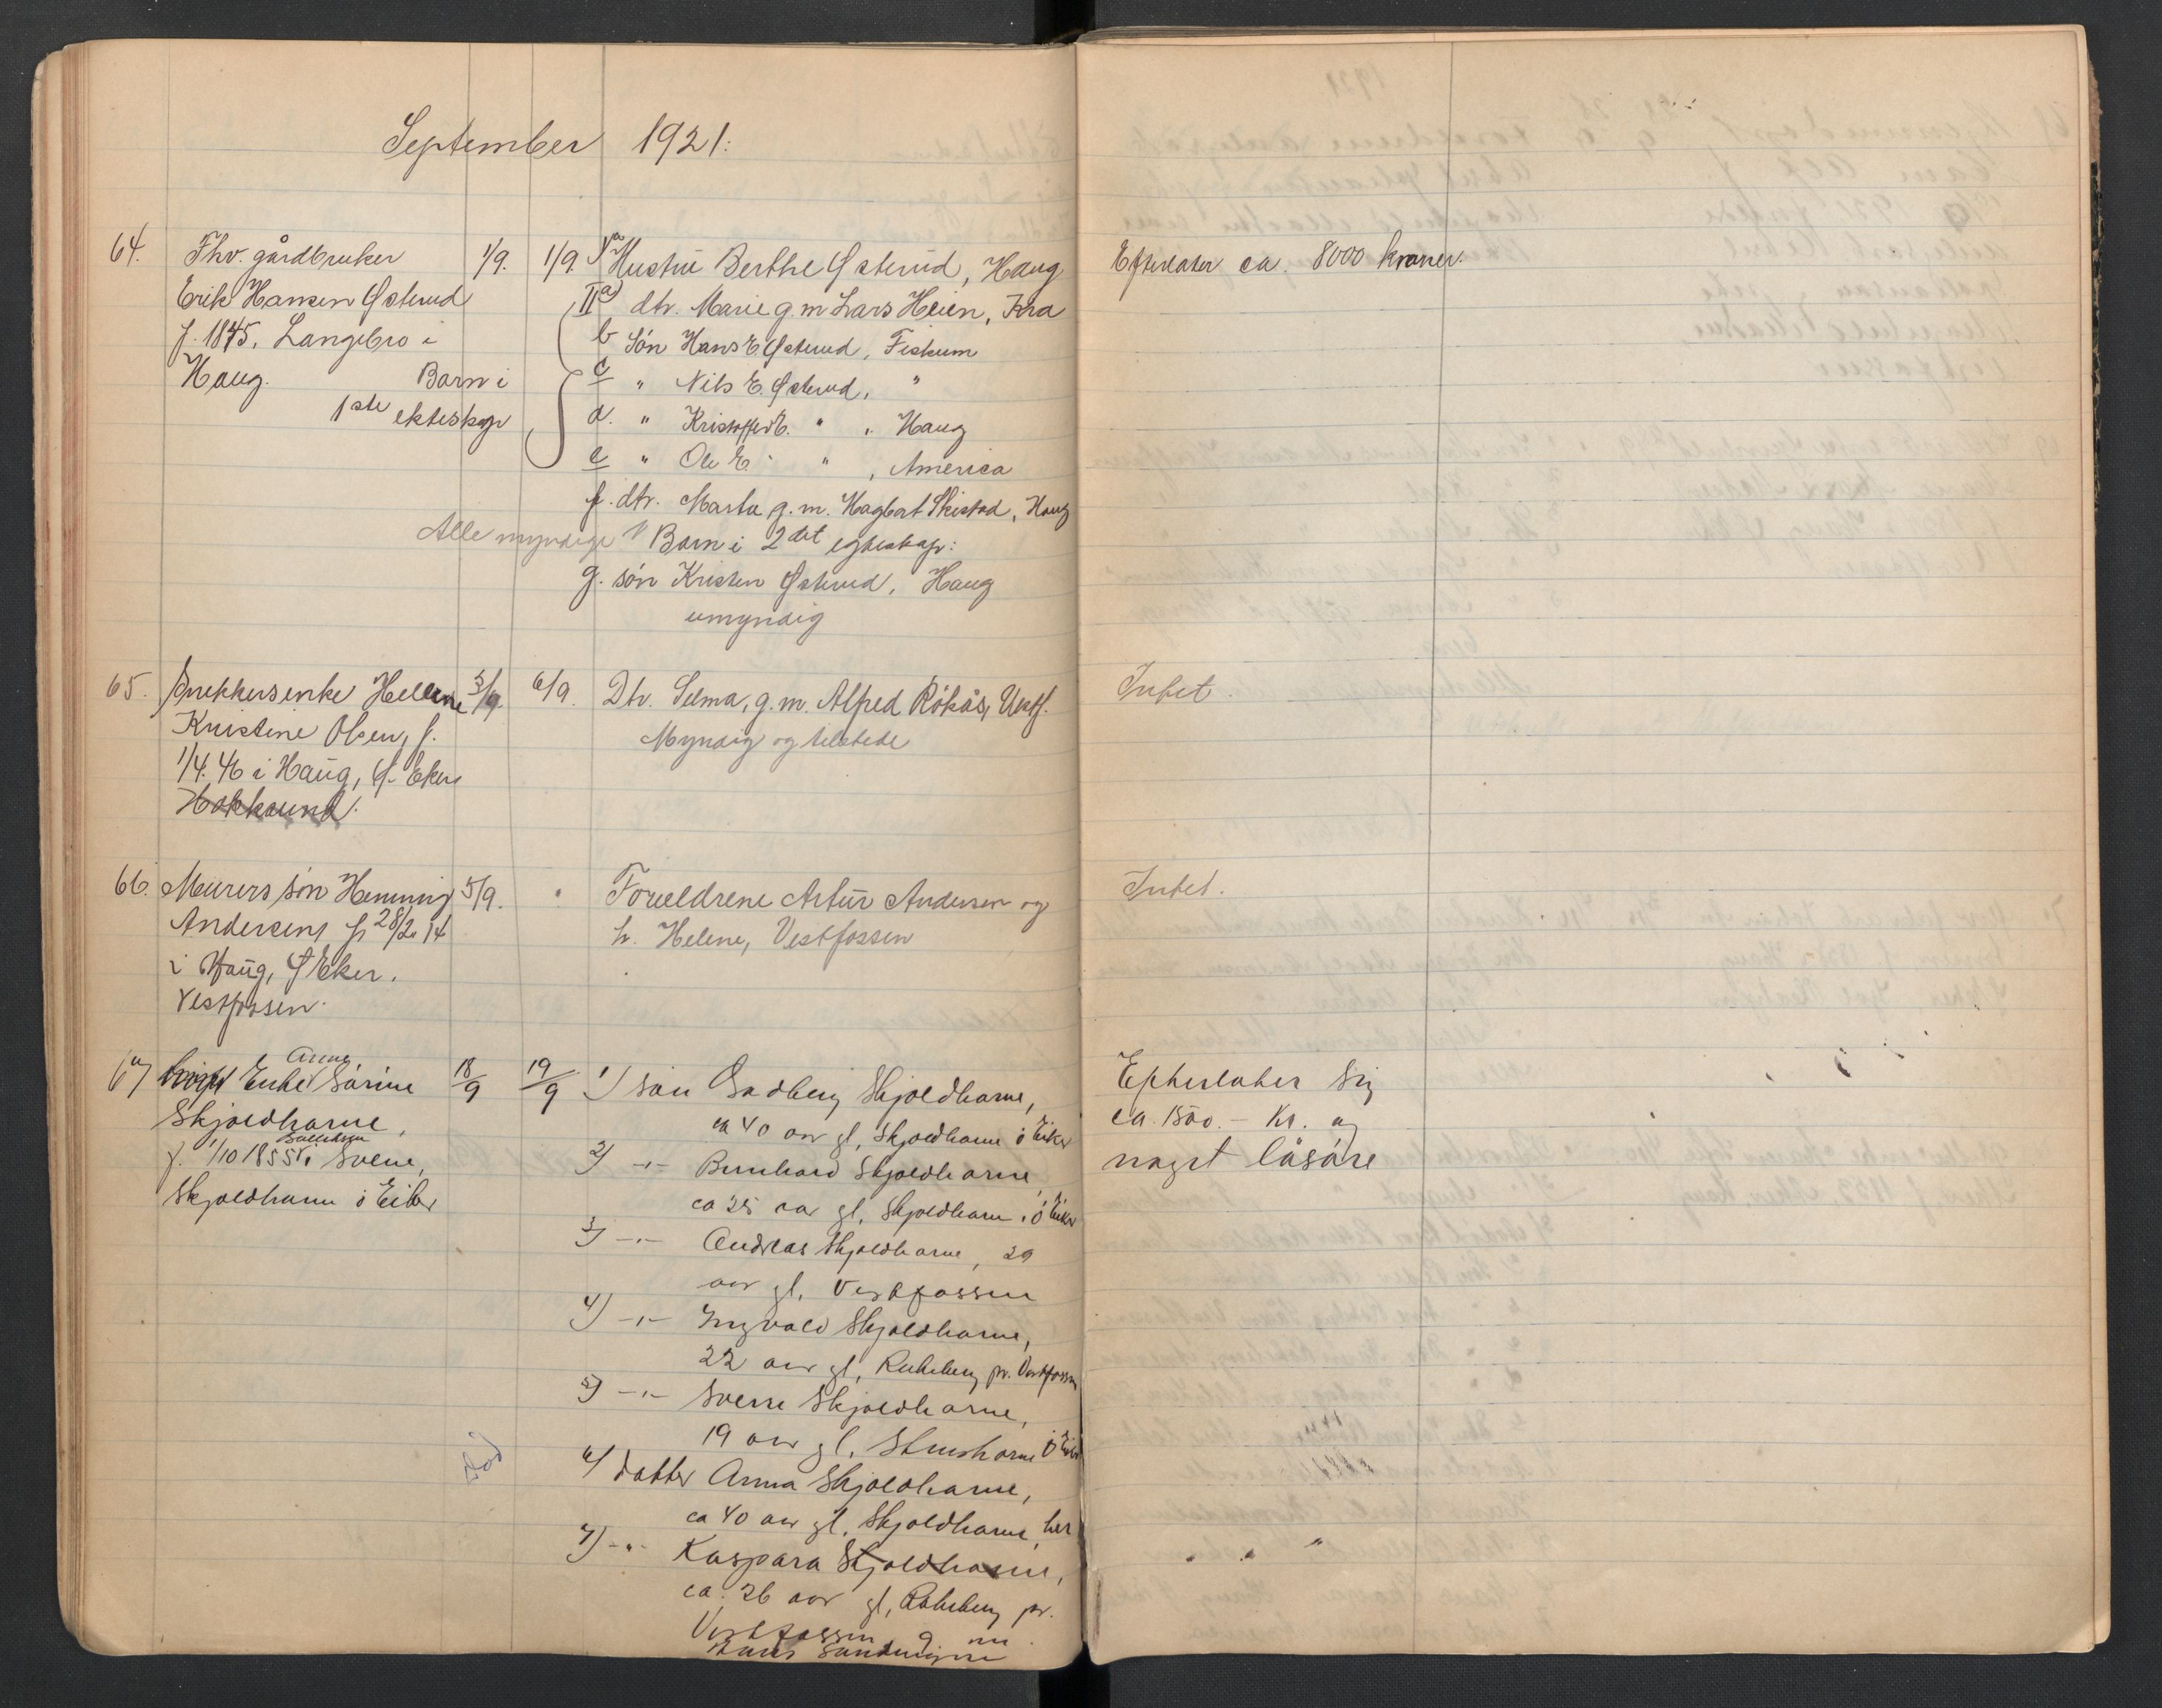 September 1921.
64. Fhv. gårdbruker 1/9. 1/9. Ia Hustru Berthe Østerud, Haug
Erik Hansen Østerud IIa) dtr. Marie g.m. Lars Heien, Kra
f. 1845. Langebro i b Søn Hans E. Østerud, Fiskum
Haug. Barn i c " Nils E. Østerud, "
1ste ekteskap d. " Kristoffer E. " " Haug
e " Ole E. " " , America
f. dtr. Marta g.m. Hagbart Skistad, Haug
Alle myndige Barn i 2det egteskap:
g. søn Kristen Østerud, Haug
umyndig
Efterlater ca. 8000 kroner.
65. Snekkerenke Hellene 5/9 6/9. Dtr. Selma, g.m. Alfred Røkås, Vestf.
Kristine Olsen, f. Myndig og tilstede
1/4.46 i Haug, Ø. Eker
Hokksund.
Intet.
66. Murers søn Henning 5/9. " Foreldrene Artur Andersen og
Andersen, f. 28/2 14 h. Helene, Vestfossen
i Haug, Ø Eker.
Vestfossen.
Intet.
67 Enke Anne Sørine 18/9 19/9 1) søn Skjoldhorne,
Skjoldhorne, ca 40 aar gl, Skjoldhorne Ö Eiker
f. 1/10 1855 i Svene, 2) -"- Bernhard Skjoldhorne,
Skjoldhorne Ö Eiker ca 35 aar gl, Skjoldhorne, Ö Eiker
3) -"- Andreas Skjoldhorne, 29
aar gl, Vestfossen
4) -"- Ingvald Skjoldhorne,
22 aar gl, pr. Vestfossen
5) -"- Sverre Skjoldhorne,
19 aar gl, Ö Eiker
6) Datter Anna Skjoldhorne,
ca 40 aar gl, Skjoldhorne, her
7) -"- Kaspara Skjoldhorne,
ca. 26 aar gl, pr.
Vestfossen g m
Efterlater sig
ca. 1500.- Kr. og
noget låsøre